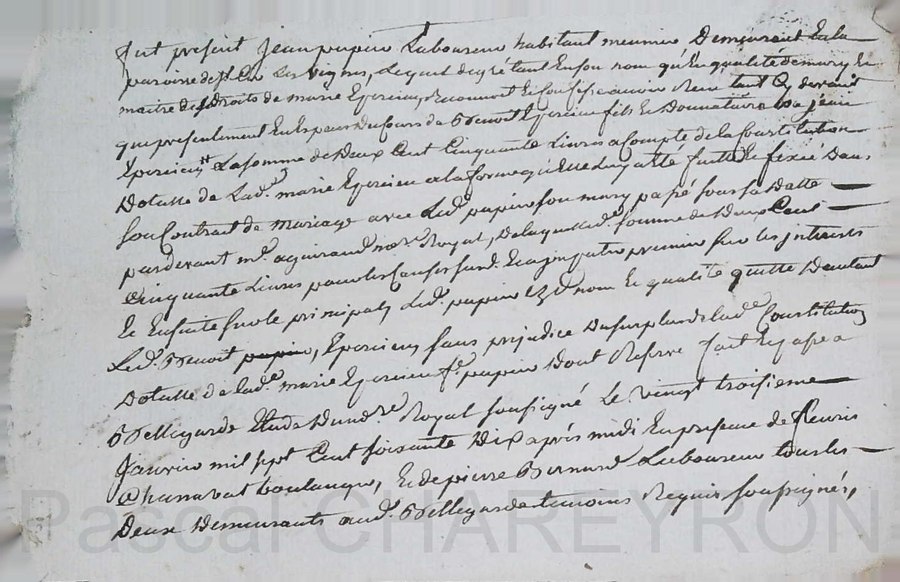 fut présent Jean pupier Laboureur habitant meunier Demeurant En la
paroisse de St En Les vignes, Lequel de gré tant En son nom qu'En qualité de mary Et
maitre des Droits de marie Epercieu Reconnoit Et confesse avoir Reçu tant Cy devant
que présentement En Espèces Du Cours de Benoit Epercieu fils Et Donnataire De jean
Epercieu La somme de Deux Cent Cinquante Livres a Compte de la Constitution
Dotalle de Lade marie Epercieu a la forme qu'Elle Luy a Eté faite Et fixée Dans
son Contract de mariage avec Led. pupier son mary passé sous sa Datte
pardevant me aguiraud nore Royal, De laquelle d. somme de Deux Cent
Cinquante Livres pour les Causes susd. Et a jmputer premier sur les jnterests
Et Ensuite sur le principal, Led. pupier Esd. nom Et qualité quitte D'autant
Led. Benoit Epercieu sans préjudice Du surplus de lade Constitution
Dotalle de lade marie Epercieu fe pupier Dont Reserve fait Et passé a
Bellegarde Etude Dud. nre Royal soussigné Le vingt troisieme
Janvier mil sept Cent soixante Dix après midi En présence de fleuris
Charravat boulanger, Et de pierre Bernard Laboureur tous les
Deux Demeurants aud. Bellegarde temoins Requis soussignés,
Pascal CHAREYRON